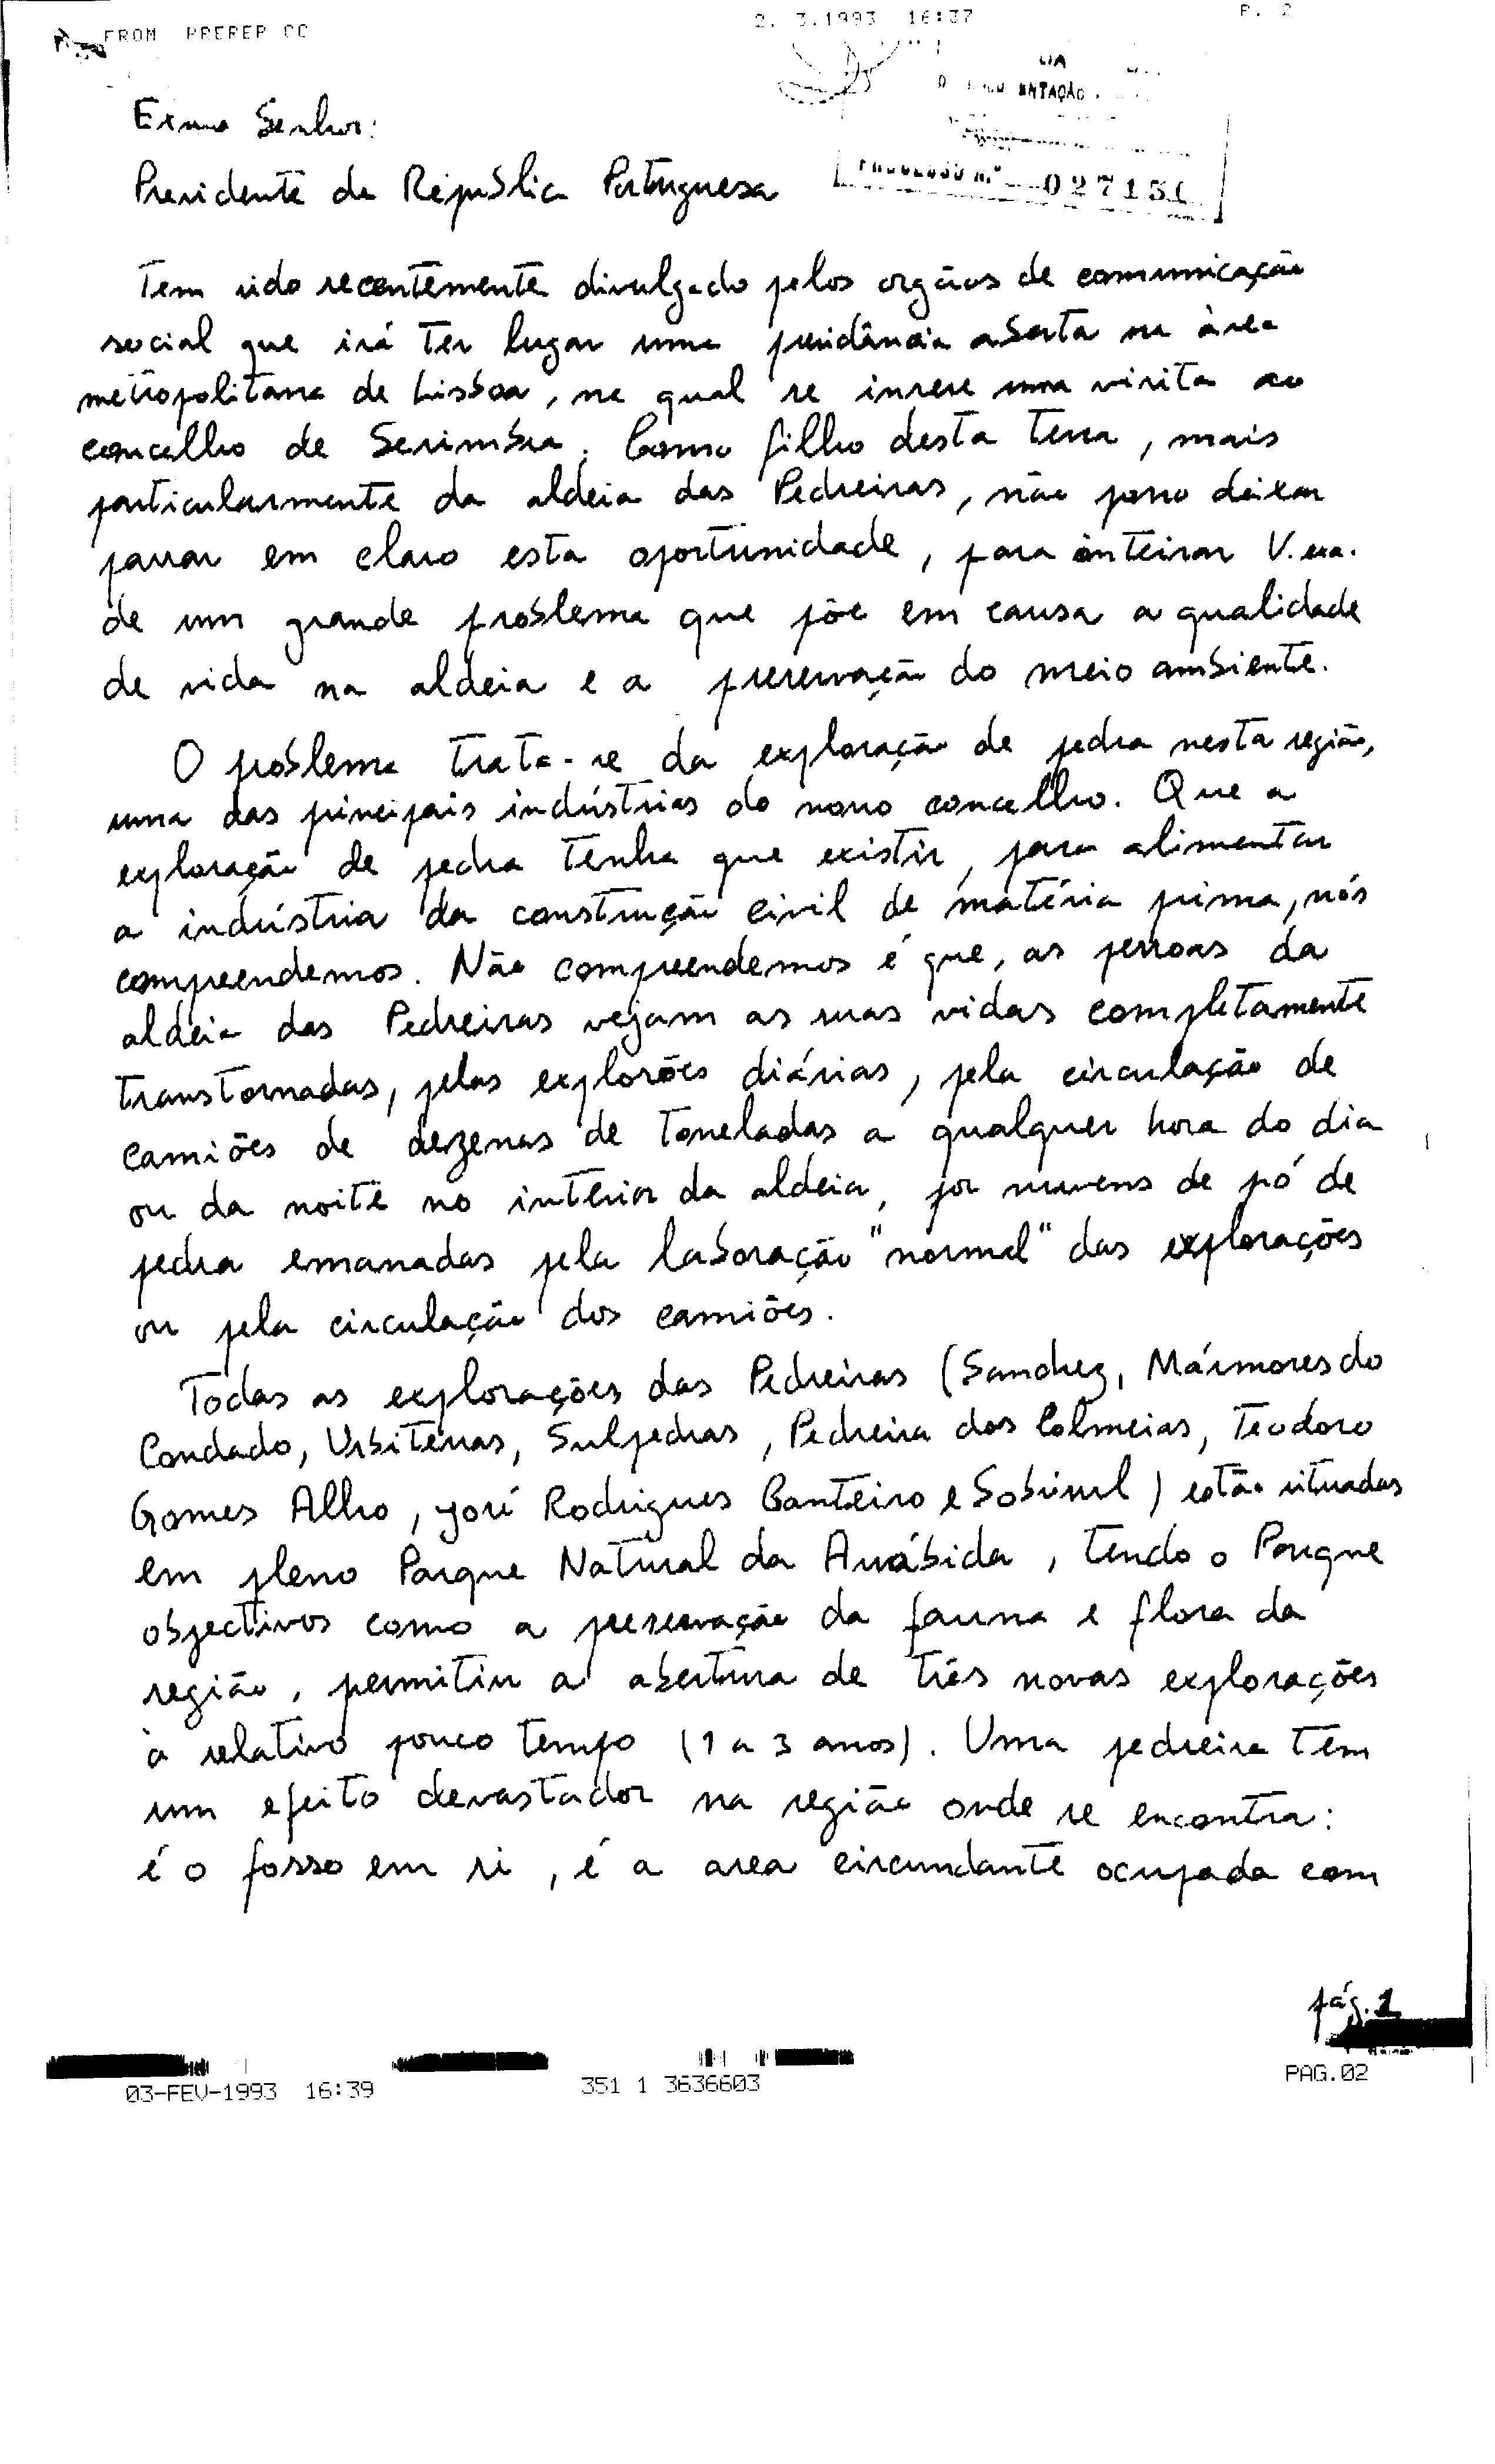 FROM PREREP CC
2. 3.1993 16:37
P. 2
NTAÇÃO
PROCESSO N.º 027151
Exmo Senhor:
Presidente da República Portuguesa
Tem sido recentemente divulgado pelos orgãos de comunicação
social que irá ter lugar uma presidância aberta na àrea
metropolitana de Lisboa, na qual se insere uma visita ao
concelho de Sesimbra. Como filho desta terra, mais
particularmente da aldeia das Pedreiras, não posso deixar
passar em claro esta oportunidade, para inteirar V. exa.
de um grande problema que põe em causa a qualidade
de vida na aldeia e a preservação do meio ambiente.
O problema trata-se da exploração de pedra nesta região,
uma das principais indústrias do nosso concelho. Que a
exploração de pedra tenha que existir, para alimentar
a indústria da construção civil de matéria prima, nós
compreendemos. Não compreendemos é que, as pessoas da
aldeia das Pedreiras vejam as suas vidas completamente
transtornadas, pelas explosões diárias, pela circulação de
camiões de dezenas de toneladas a qualquer hora do dia
ou da noite no interior da aldeia, por nuvens de pó de
pedra emanadas pela laboração "normal" das explorações
ou pela circulação dos camiões.
Todas as explorações das Pedreiras (Sanchez, Mármores do
Condado, Urbiterras, Sulpedras, Pedreira das Colmeias, Teodoro
Gomes Alho, José Rodrigues Canteiro e Sobrimil) estão situadas
em pleno Parque Natural da Arrábida, tendo o Parque
objectivos como a preservação da fauna e flora da
região, permitiu a abertura de três novas explorações
à relativo pouco tempo (1 a 3 anos). Uma pedreira tem
um efeito devastador na região onde se encontra:
é o fosso em si, é a area circundante ocupada com
pág. 1
03-FEV-1993 16:39
351 1 3636603
PAG.02